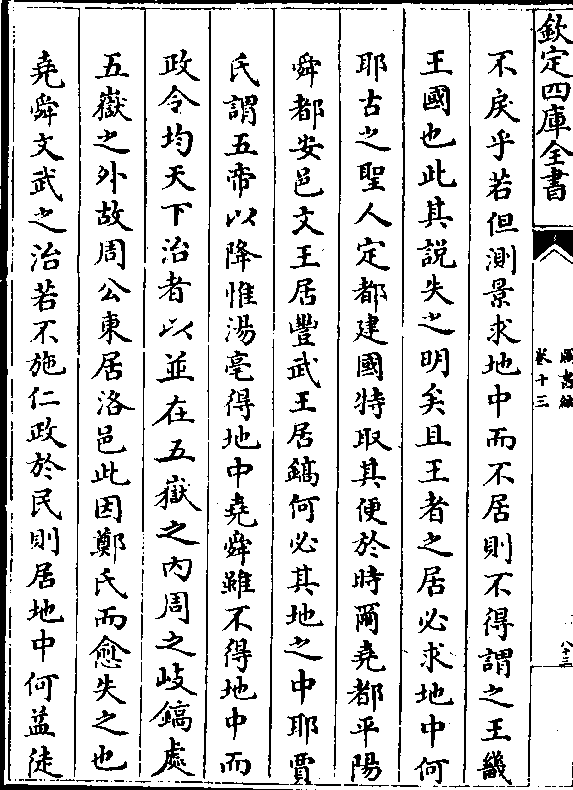 欽定四庫全書
圖書編
卷十三
八十三
不戾乎若但測景求地中而不居則不得謂之王畿
王國也此其說失之明矣且王者之居必求地中何
耶古之聖人定都建國特取其便於時爾堯都平陽
舜都安邑文王居豐武王居鎬何必其地之中耶賈
氏謂五帝以降惟湯亳得地中堯舜雖不得地中而
政令均天下治者以並在五嶽之內周之岐鎬處
五嶽之外故周公東居洛邑此因鄭氏而愈失之也
堯舜文武之治若不施仁政於民則居地中何益徒